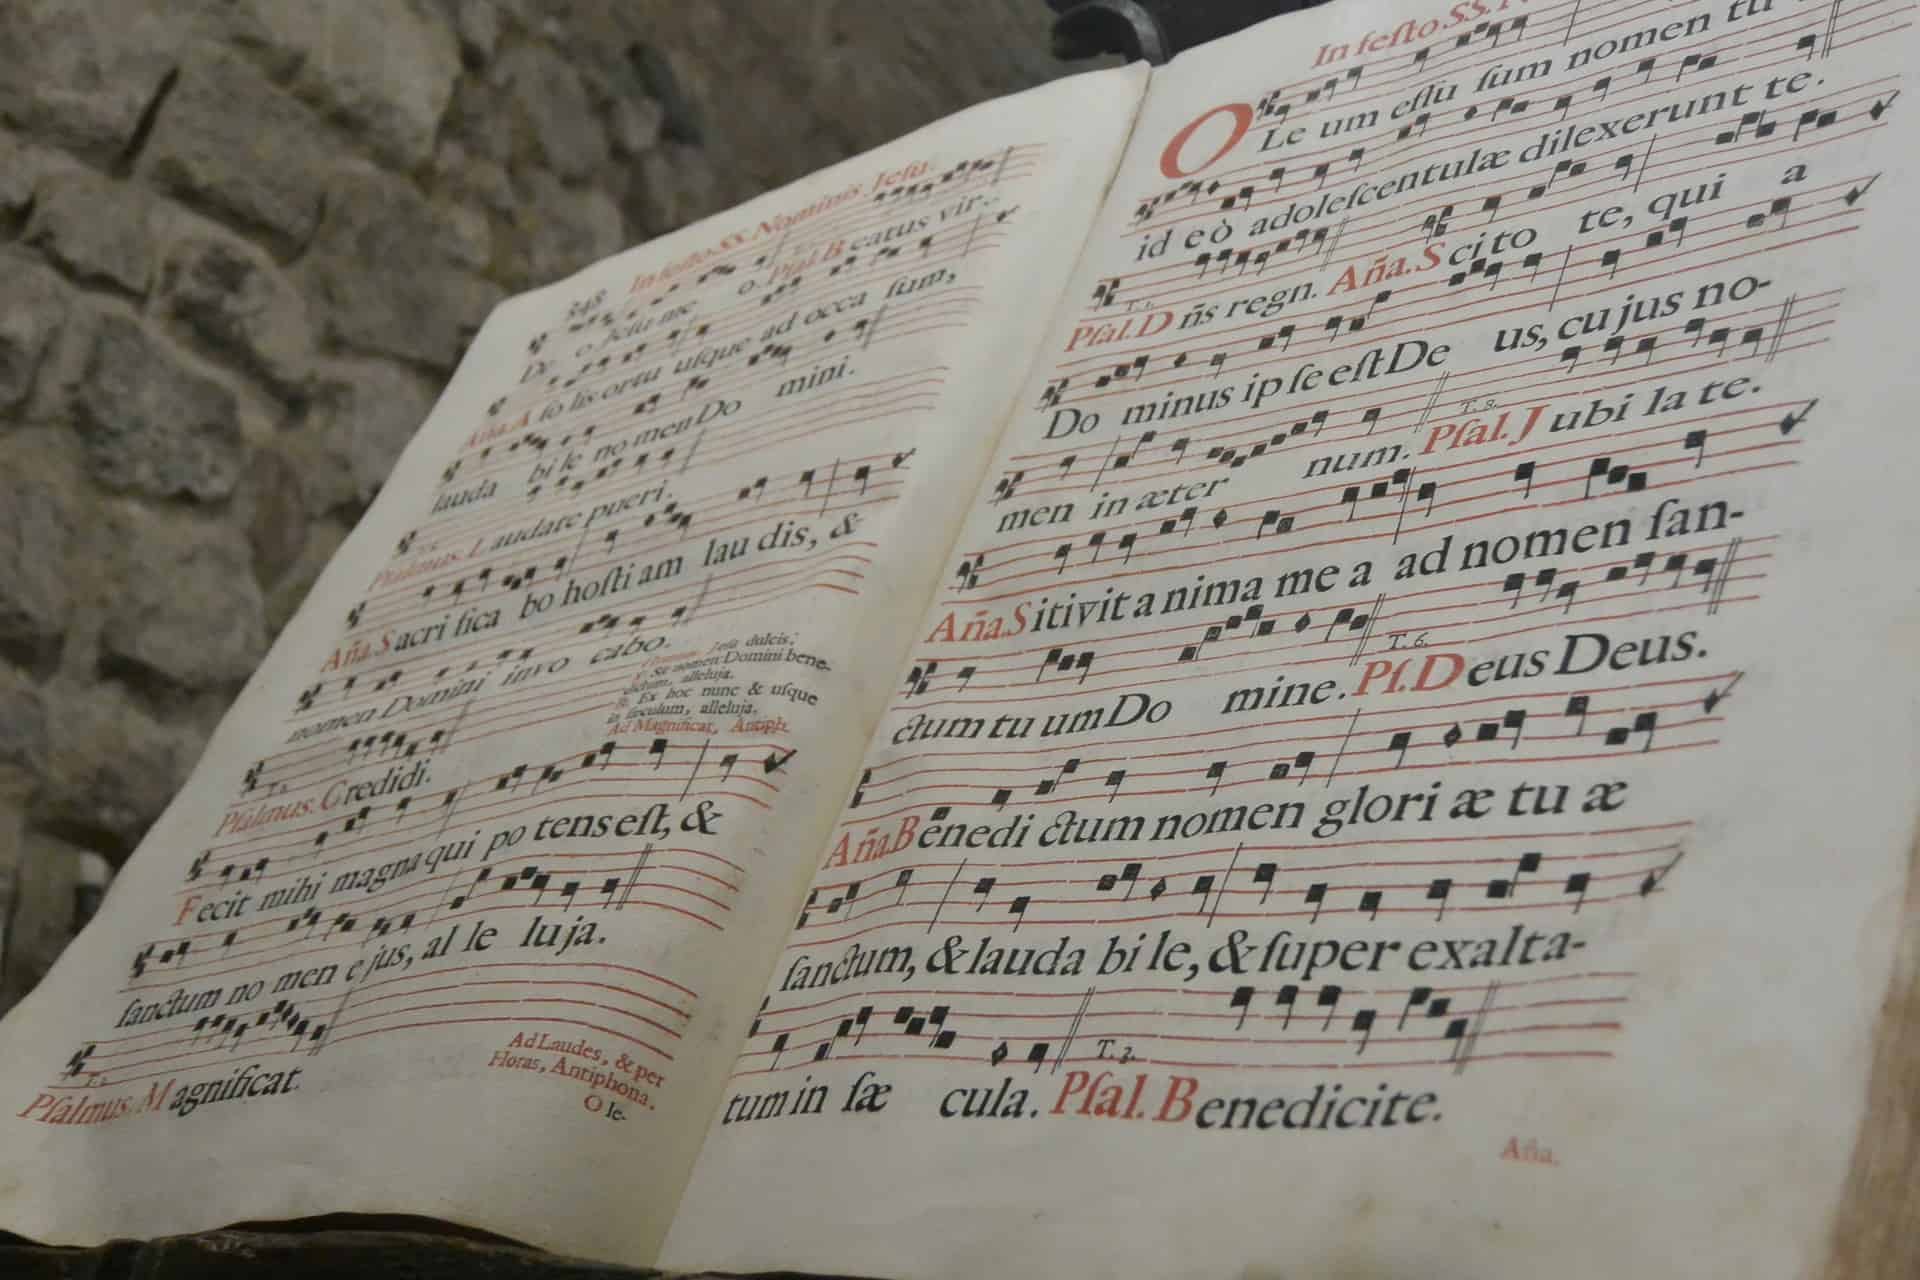 348
In festo SS. Nominis Jesu.
De o Jesu me o. Psal. Beatus vir.
Aña. A so lis ortu usque ad occa sum,
lauda bi le no men Do mini.
Psalmus. Laudate pueri.
Aña. Sacri fica bo hosti am lau dis, &
nomen Domini invo cabo.
Jesu dulcis.
Sit nomen Domini bene-
dictum, alleluja.
Ex hoc nunc & usque
in sæculum, alleluja.
Ad Magnificat, Antiph.
T.
Psalmus. Credidi.
Fecit mihi magna qui po tens est, &
sanctum no men e jus, al le lu ja.
Psalmus. Magnificat.
Ad Laudes, & per
Horas, Antiphona.
O le-
In festo SS. N
OLe um effu sum nomen tu
id eò adolescentulæ dilexerunt te.
Psal. Dñs regn. Aña. Scito te, qui a
Do minus ip se est De us, cu jus no-
T. 3.
men in æter num. Psal. Jubi la te.
Aña. Sitivit a nima me a ad nomen san-
T. 6.
ctum tu um Do mine. Ps. Deus Deus.
Aña. Benedi ctum nomen glori æ tu æ
sanctum, & lauda bi le, & super exalta-
T. 3.
tum in sæ cula. Psal. Benedicite.
Aña.